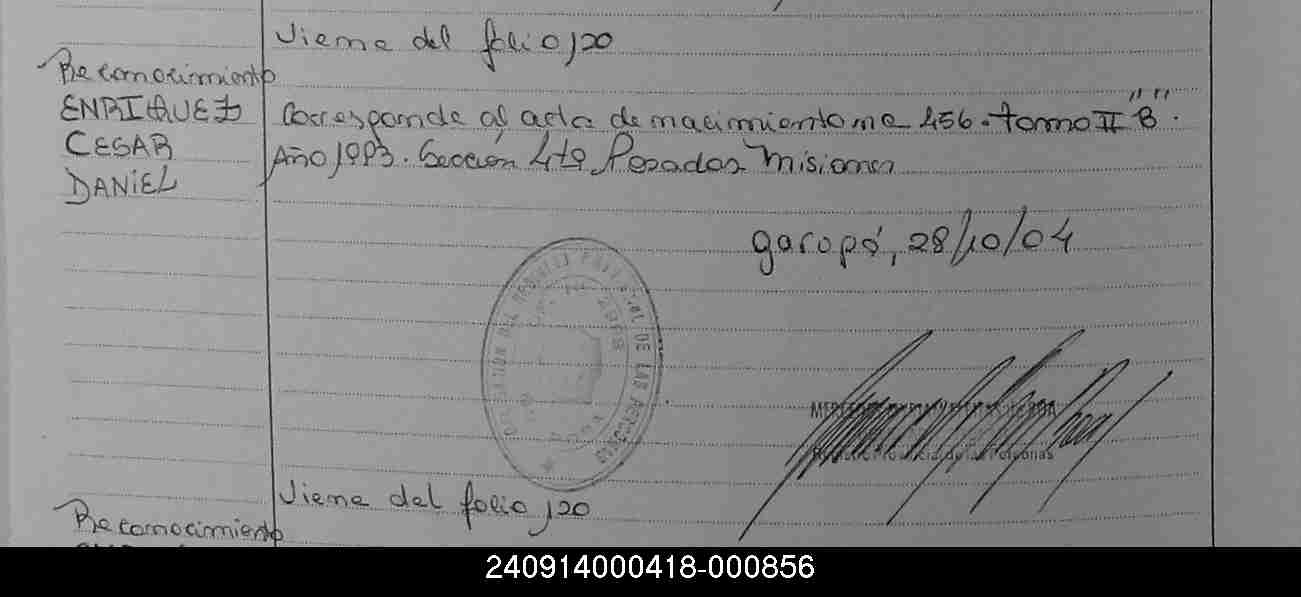 Viene del folio 120
Reconocimiento
ENRIQUEZ
CESAR
DANIEL
Corresponde al acta de nacimiento nº 456. tomo II "B".
Año 1993. Sección 4tº Posadas Misiones
Garupá, 28/10/04
DELEGACION DEL REGISTRO PROVINCIAL DE LAS PERSONAS
Registro Provincial de las Personas
Viene del folio 120
Reconocimiento
240914000418-000856